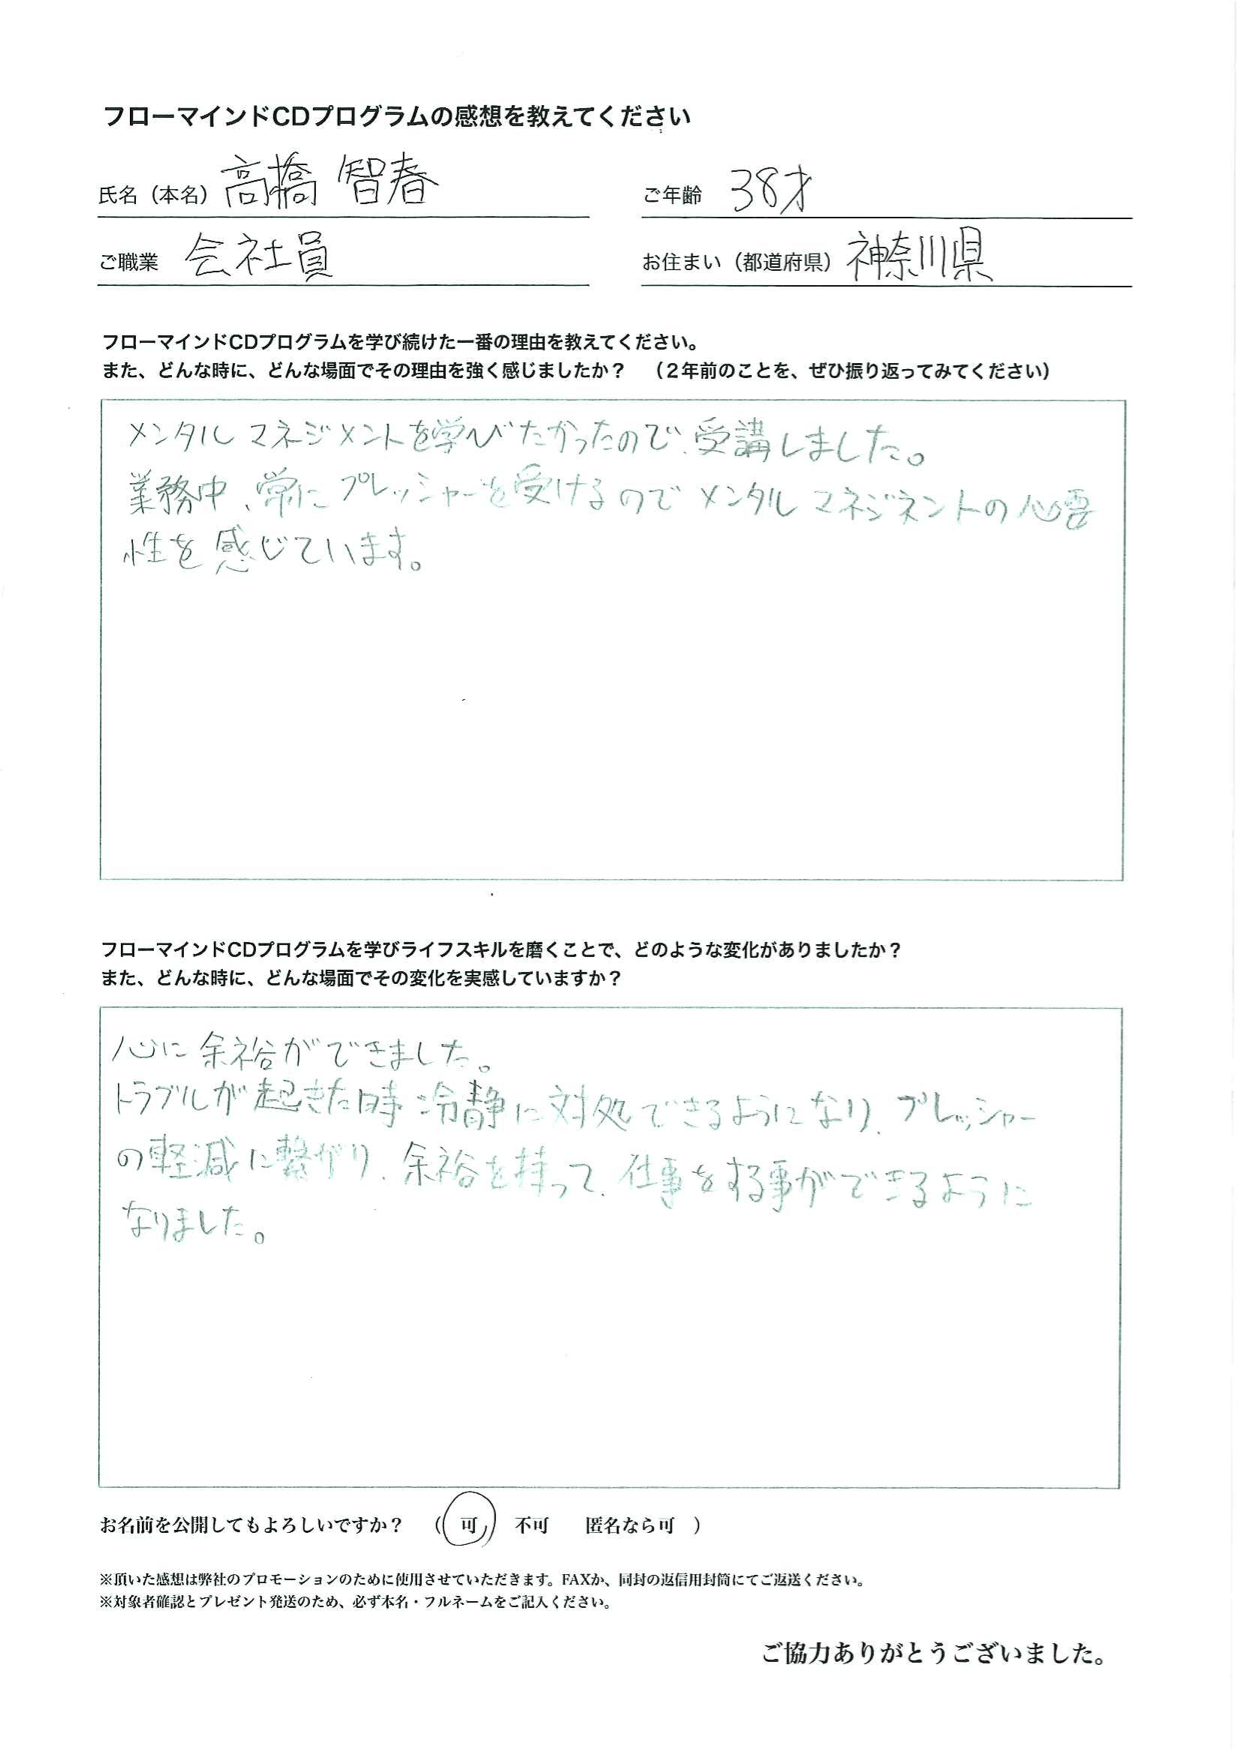 フローマインドCDプログラムの感想を教えてください
氏名（本名） 高橋 智春 ご年齢 38才
ご職業 会社員 お住まい（都道府県） 神奈川県
フローマインドCDプログラムを学び続けた一番の理由を教えてください。
また、どんな時に、どんな場面でその理由を強く感じましたか？ （２年前のことを、ぜひ振り返ってみてください）
メンタルマネジメントを学びたかったので、受講しました。
業務中、常にプレッシャーを受けるのでメンタルマネジネントの必要
性を感じています。
フローマインドCDプログラムを学びライフスキルを磨くことで、どのような変化がありましたか？
また、どんな時に、どんな場面でその変化を実感していますか？
心に余裕ができました。
トラブルが起きた時冷静に対処できるようになり、プレッシャー
の軽減に繋がり、余裕を持って、仕事をする事ができるように
なりました。
お名前を公開してもよろしいですか？ （ 可 不可 匿名なら可 ）
※頂いた感想は弊社のプロモーションのために使用させていただきます。FAXか、同封の返信用封筒にてご返送ください。
※対象者確認とプレゼント発送のため、必ず本名・フルネームをご記入ください。
ご協力ありがとうございました。